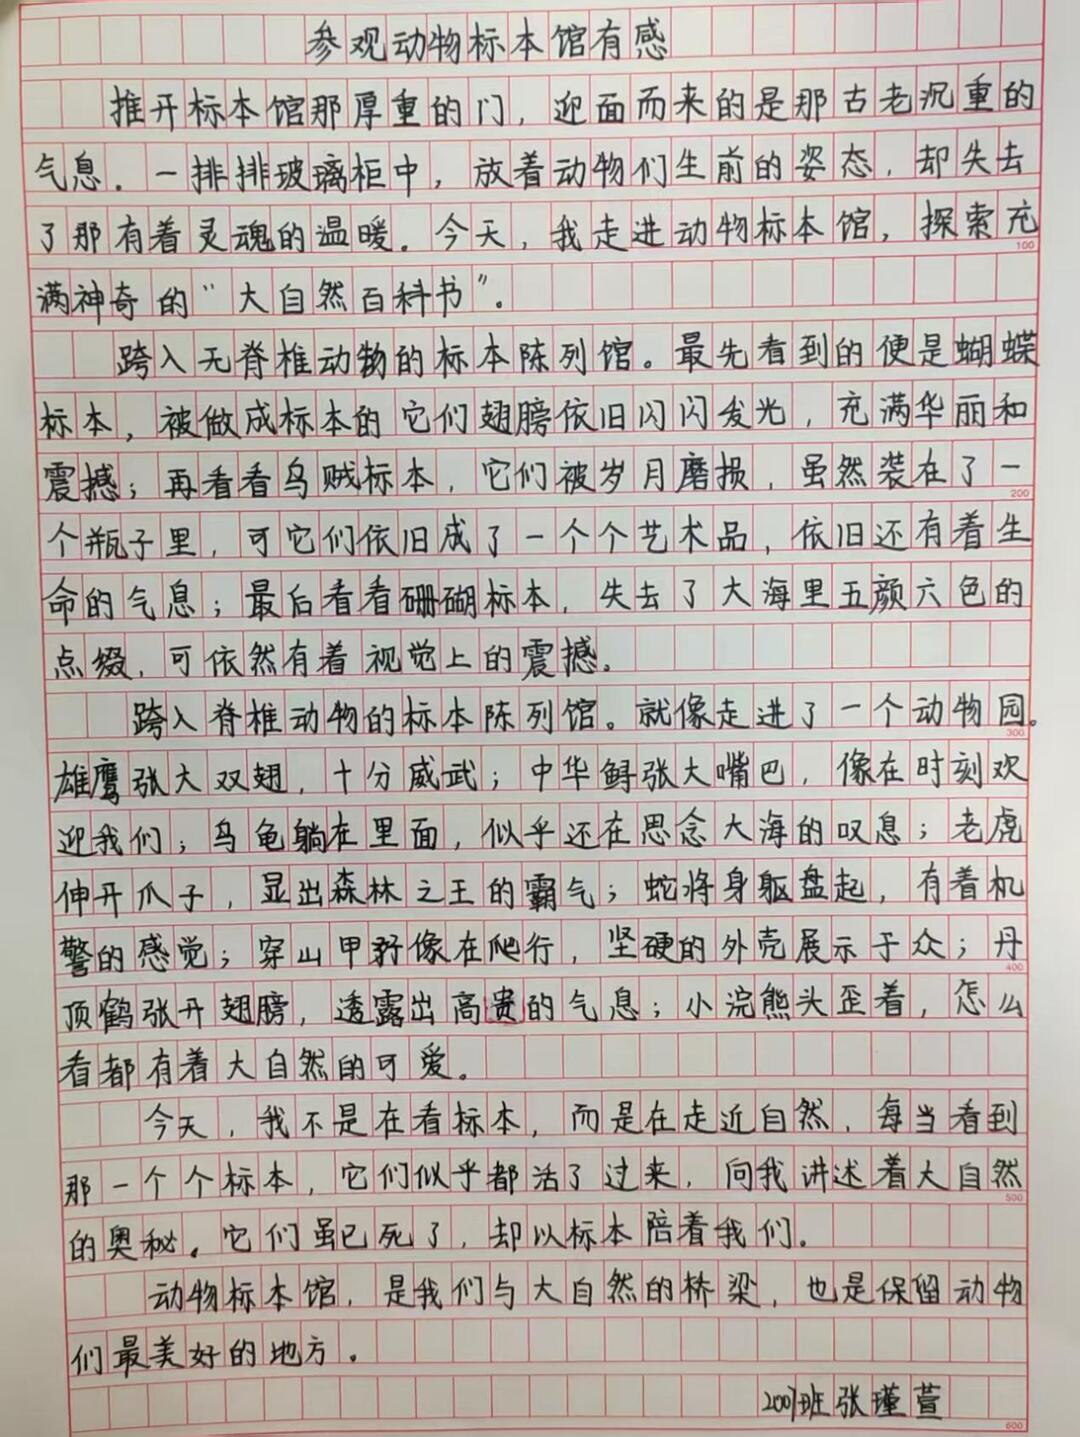 参观动物标本馆有感
推开标本馆那厚重的门，迎面而来的是那古老沉重的
气息。一排排玻璃柜中，放着动物们生前的姿态，却失去
了那有着灵魂的温暖。今天，我走进动物标本馆，探索充
100
满神奇的“大自然百科书”。
跨入无脊椎动物的标本陈列馆。最先看到的便是蝴蝶
标本，被做成标本的它们翅膀依旧闪闪发光，充满华丽和
震撼；再看看乌贼标本，它们被岁月磨损，虽然装在了一
200
个瓶子里，可它们依旧成了一个个艺术品，依旧还有着生
命的气息；最后看看珊瑚标本，失去了大海里五颜六色的
点缀，可依然有着视觉上的震撼。
跨入脊椎动物的标本陈列馆。就像走进了一个动物园。
300
雄鹰张大双翅，十分威武；中华鲟张大嘴巴，像在时刻欢
迎我们；乌龟躺在里面，似乎还在思念大海的叹息；老虎
伸开爪子，显出森林之王的霸气；蛇将身躯盘起，有着机
警的感觉；穿山甲犹像在爬行，坚硬的外壳展示于众；丹
400
顶鹤张开翅膀，透露出高贵的气息；小浣熊头歪着，怎么
看都有着大自然的可爱。
今天，我不是在看标本，而是在走近自然，每当看到
那一个个标本，它们似乎都活了过来，向我讲述着大自然
500
的奥秘。它们虽已死了，却以标本陪着我们。
动物标本馆，是我们与大自然的桥梁，也是保留动物
们最美好的地方。
2007班张瑾萱
600